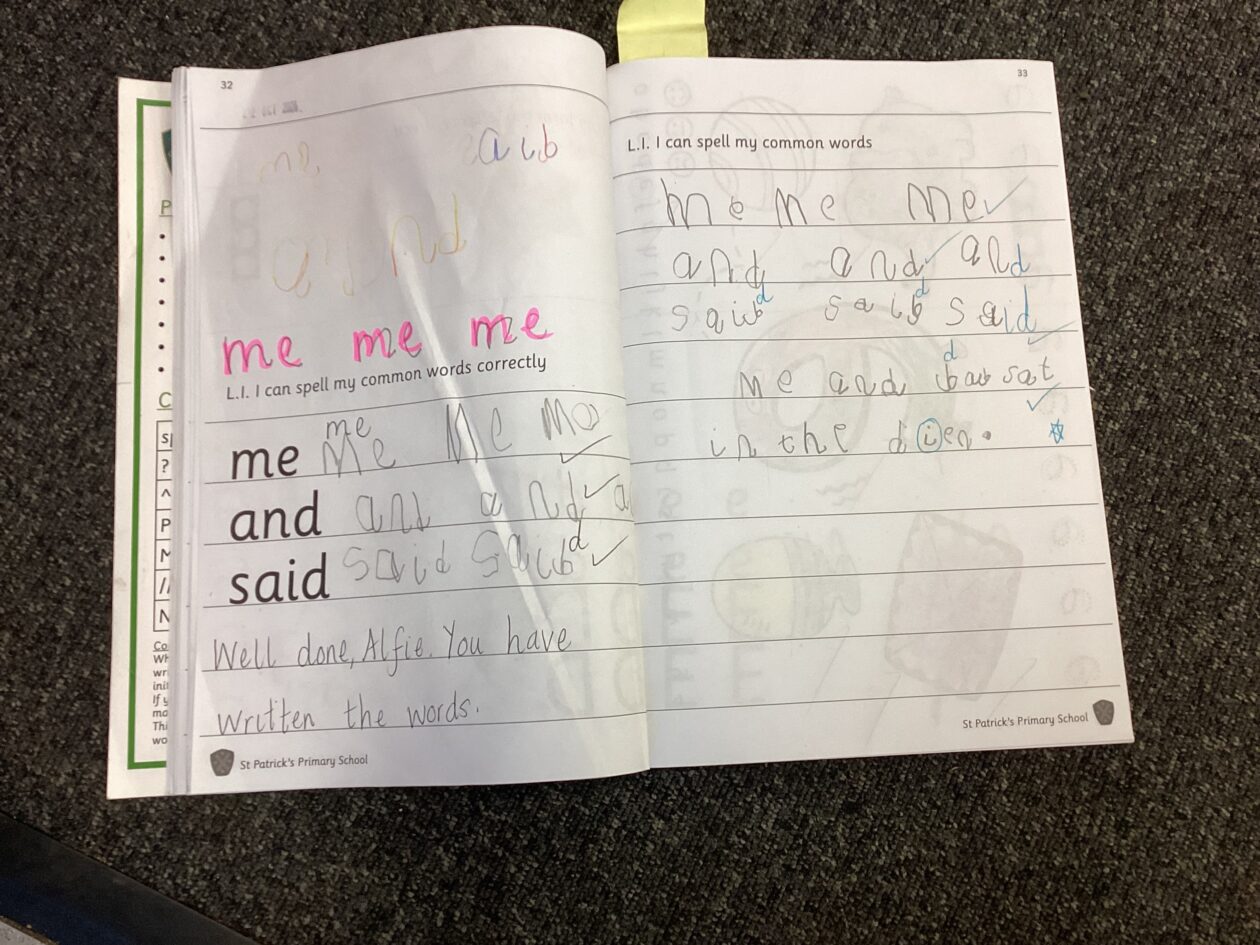 32
me
saib
and
me me me
L.I. I can spell my common words correctly
me me
me Me Me Me
and and and a
said said saib d
Well done, Alfie. You have
written the words.
St Patrick's Primary School
33
L.I. I can spell my common words
me me me
and and and
d d
saib saib said
d
me and bab sat
in the dien.
St Patrick's Primary School
P
C
?
^
P
M
//
N
Co
Wh
wri
init
If y
ma
Thi
wo